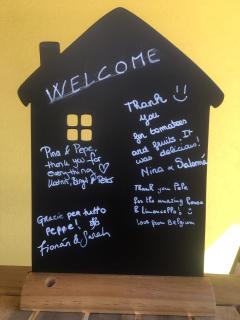 WELCOME
Pina & Pepe,
thank you for
everything ♡
Grazie per tutto
Peppe!
Fionán & Sarah
Thank
you
for tomatoes
and fruits. It
was delicious!
Nina & Salomé
Thank you Pepe
for the amazing
& limoncello!
Love from Belgium